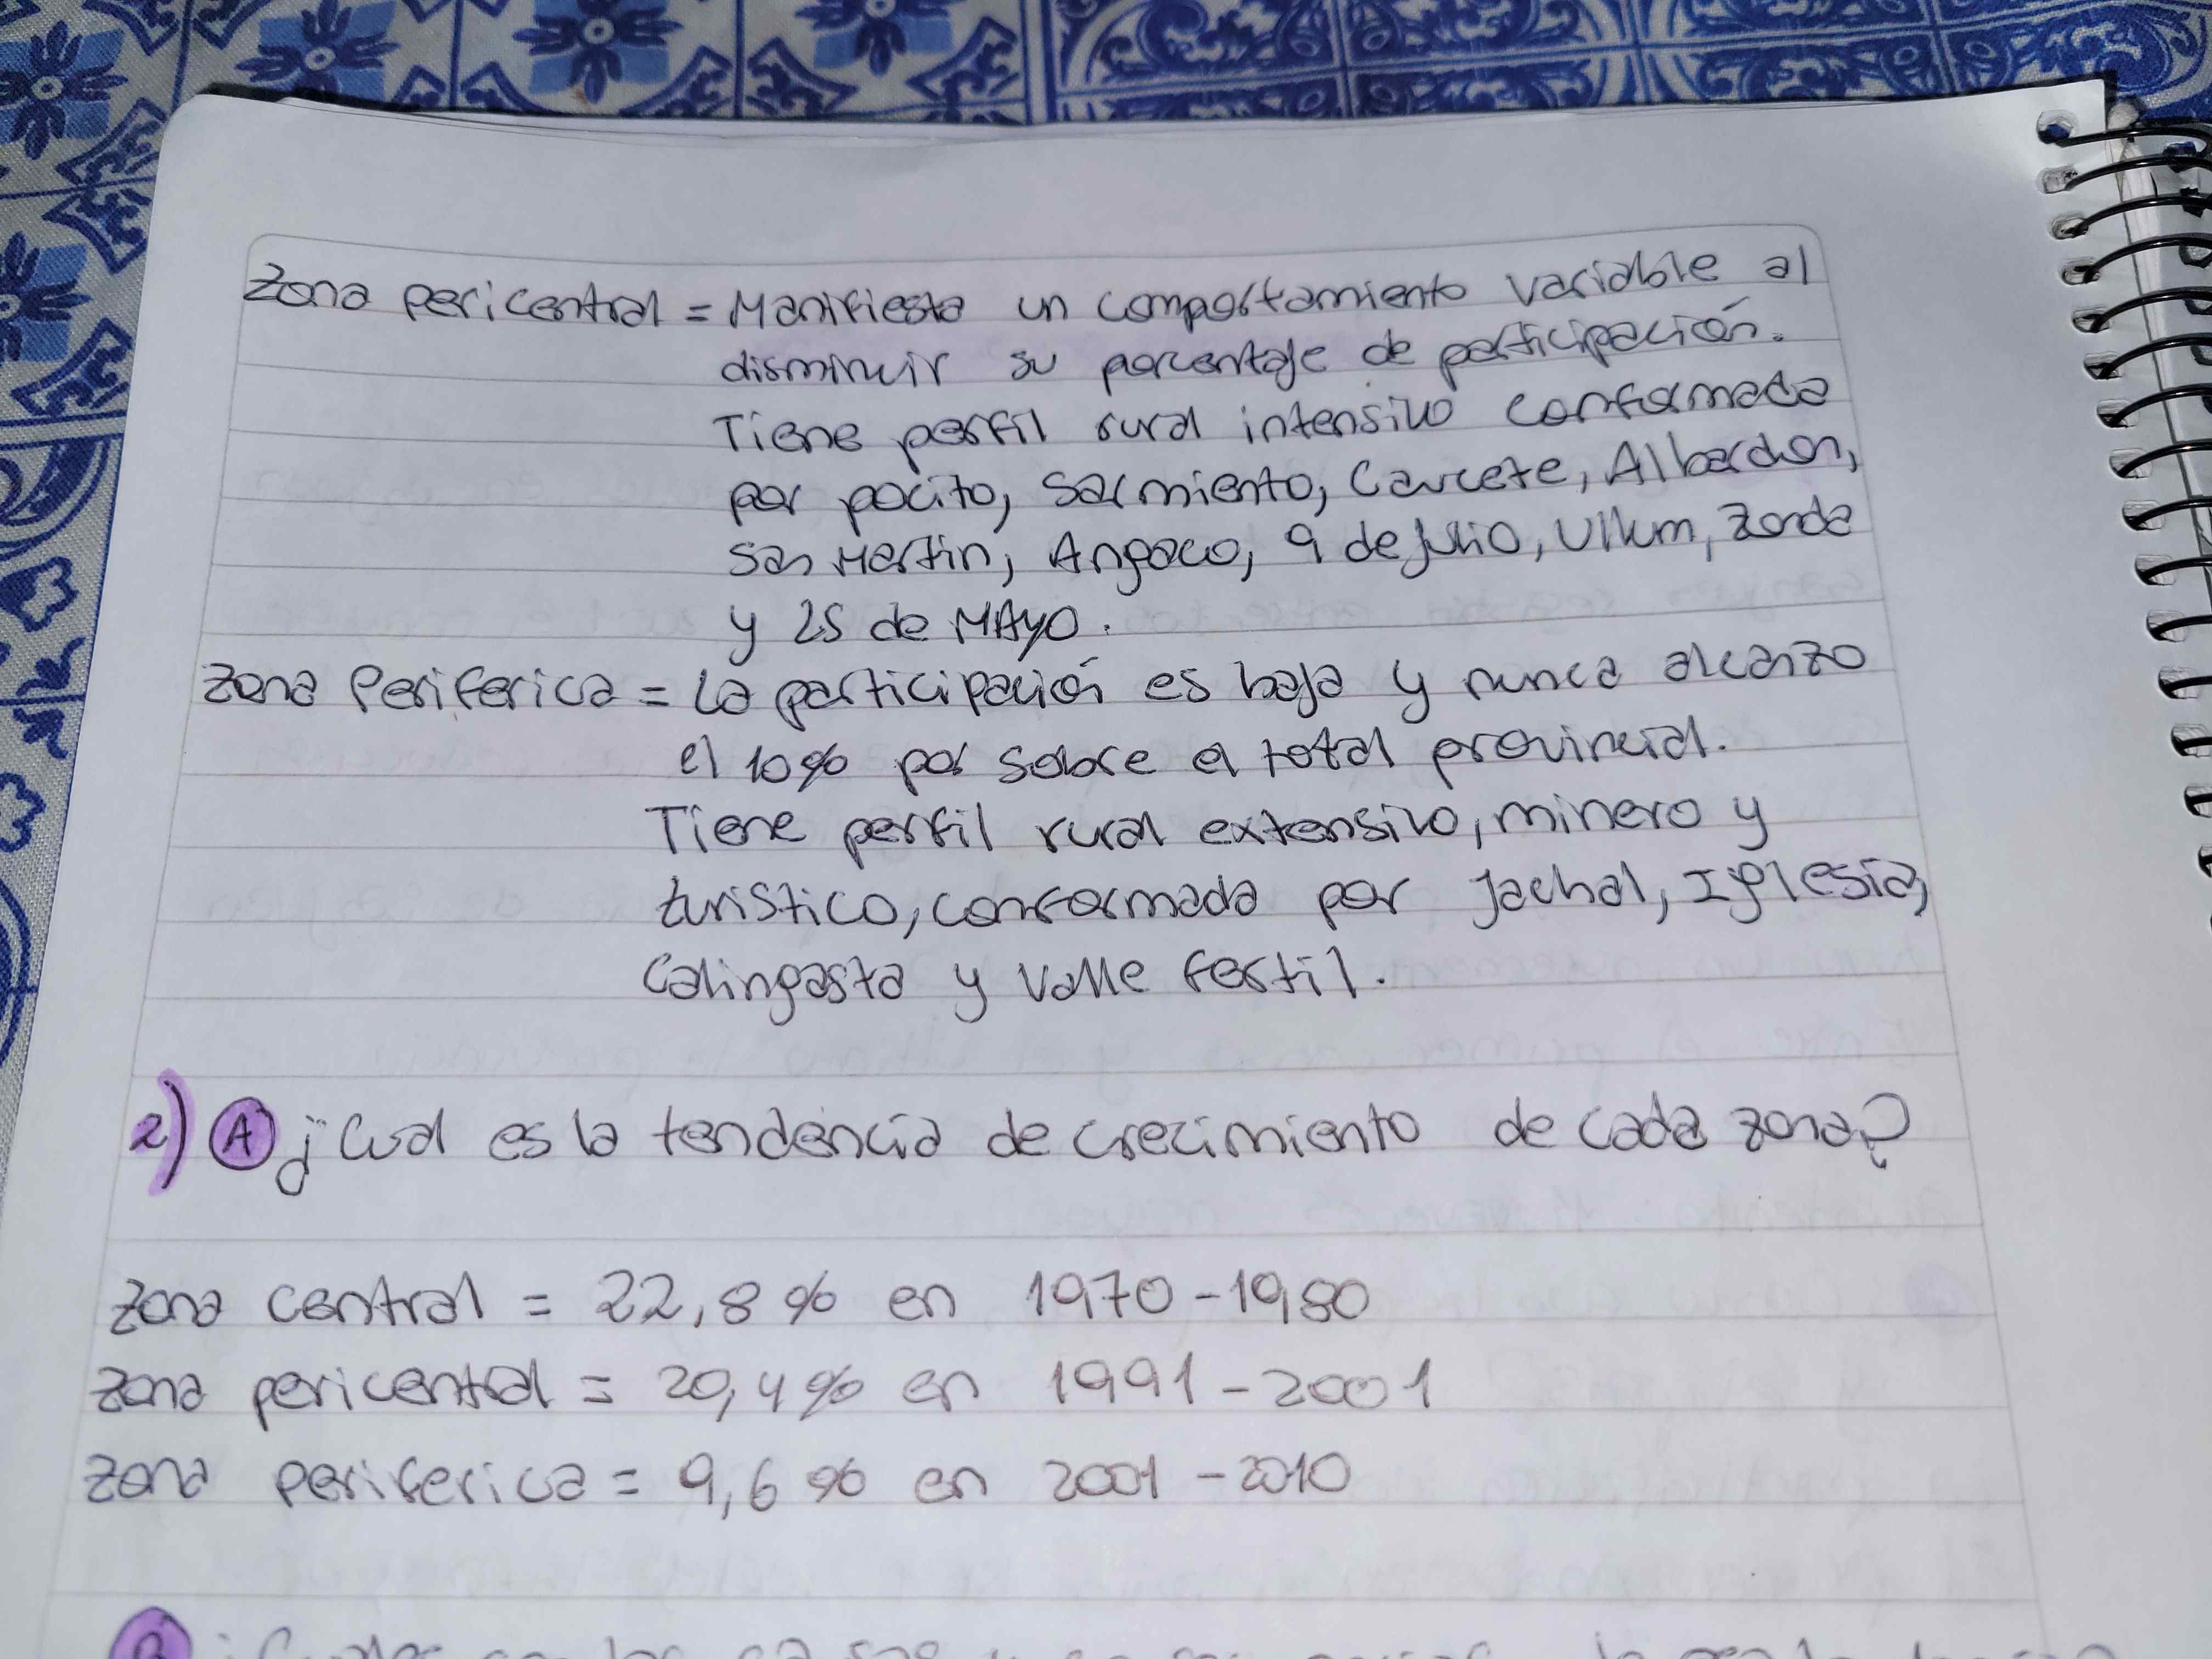 Zona pericentral = Manifiesta un comportamiento variable al
disminuir su porcentaje de participación.
Tiene perfil rural intensivo conformada
por pocito, Sarmiento, Caucete, Albardon,
San Martin, Angaco, 9 de julio, Ullum, Zonda
y 25 de MAYO.
Zona Periferica = La participación es baja y nunca alcanzo
el 10% por sobre el total provincial.
Tiene perfil rural extensivo, minero y
turístico, conformada por Jachal, Iglesia,
Calingasta y Valle fertil.
2) A ¿Cual es la tendencia de crecimiento de cada zona?
Zona central = 22,8% en 1970-1980
Zona pericentral = 20,4% en 1991-2001
Zona periferica = 9,6% en 2001-2010